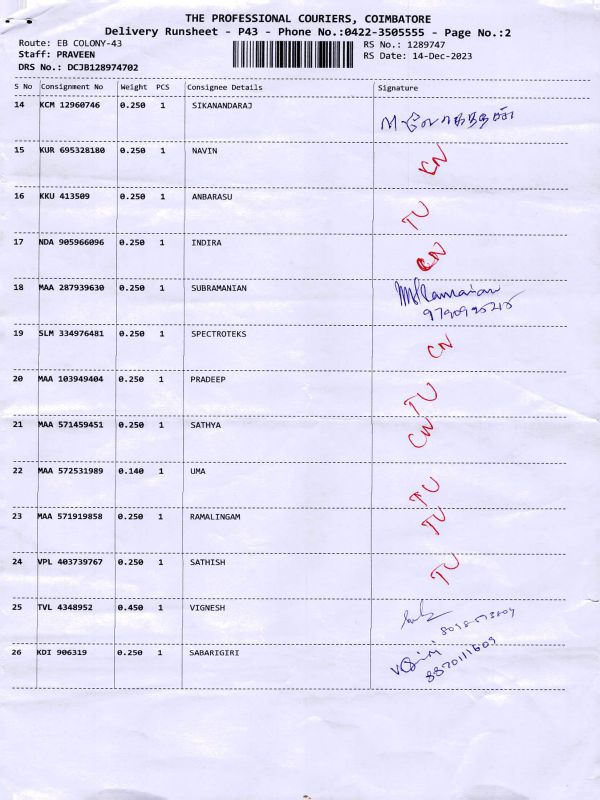 THE PROFESSIONAL COURIERS, COIMBATORE
Delivery Runsheet - P43 - Phone No.:0422-3505555 - Page No.:2
Route: EB COLONY-43
RS No.: 1289747
Staff: PRAVEEN
RS Date: 14-Dec-2023
DRS No.: DCJB128974702
S No Consignment No Weight PCS Consignee Details Signature
14 KCM 12960746 0.250 1 SIKANANDARAJ
15 KUR 695328180 0.250 1 NAVIN CN
16 KKU 413509 0.250 1 ANBARASU TU
17 NDA 905966096 0.250 1 INDIRA CN
18 MAA 287939630 0.250 1 SUBRAMANIAN
19 SLM 334976481 0.250 1 SPECTROTEKS CN
20 MAA 103949404 0.250 1 PRADEEP TU
21 MAA 571459451 0.250 1 SATHYA CN
22 MAA 572531989 0.140 1 UMA TU
23 MAA 571919858 0.250 1 RAMALINGAM TU
24 VPL 403739767 0.250 1 SATHISH TU
25 TVL 4348952 0.450 1 VIGNESH
26 KDI 906319 0.250 1 SABARIGIRI
8870111609